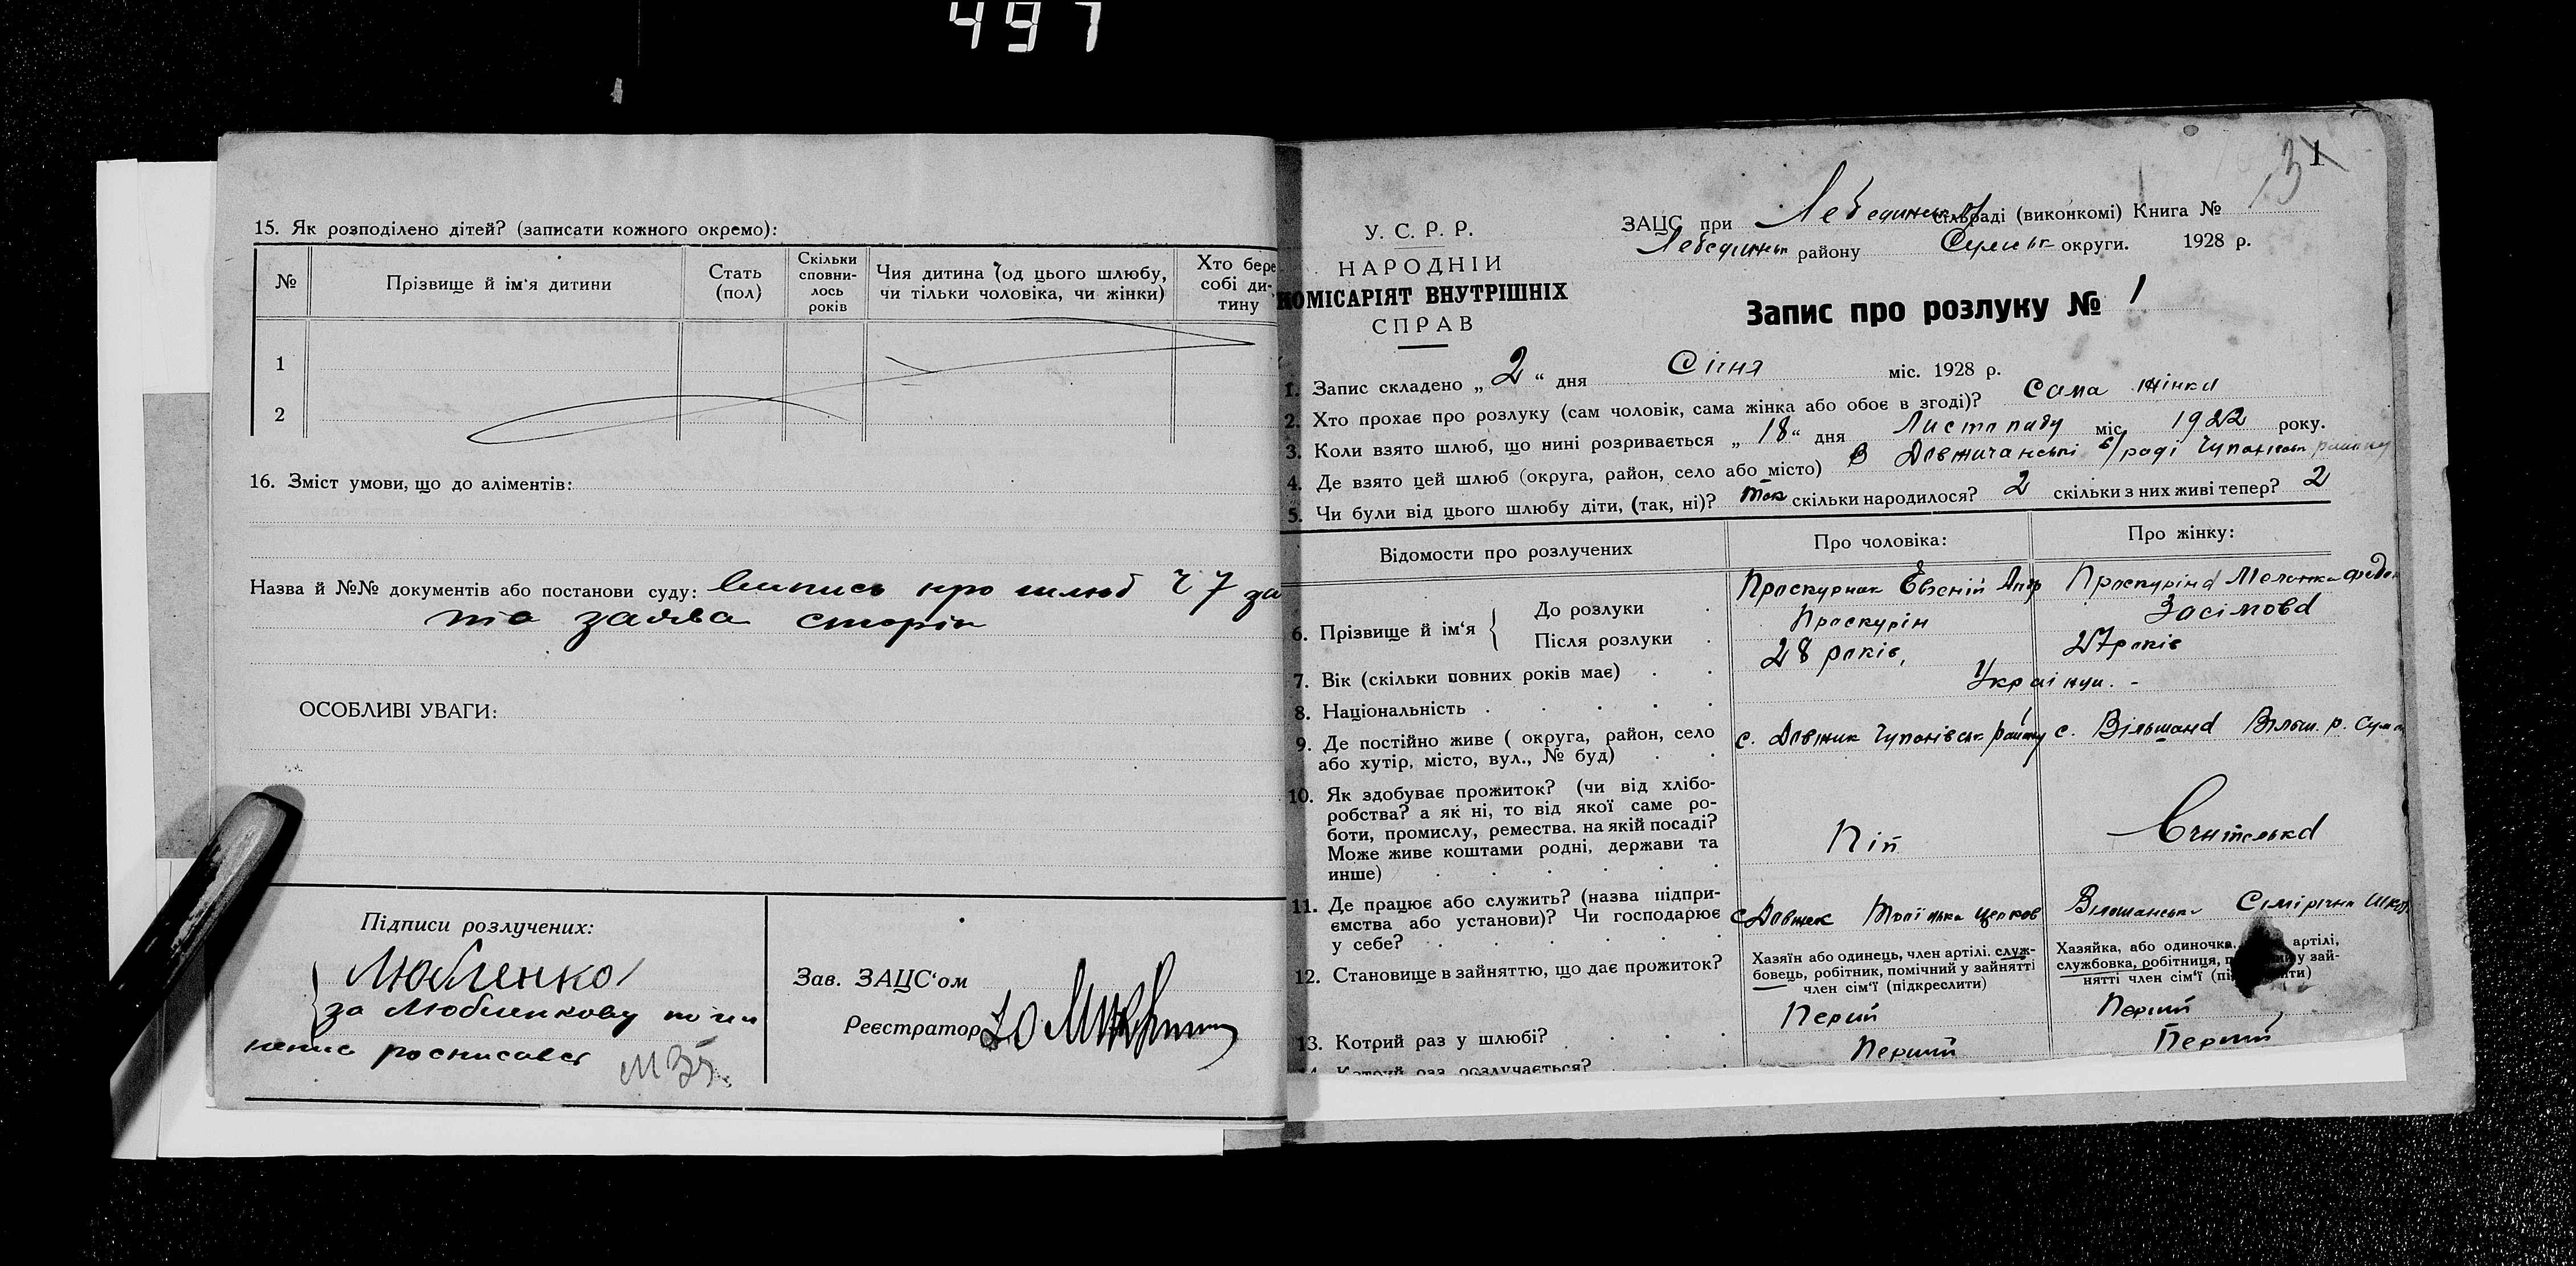 497
15. Як розподілено дітей? (записати кожного окремо):
№ Прізвище й ім'я дитини Стать (пол) Скільки сповнилось років Чия дитина (од цього шлюбу, чи тільки чоловіка, чи жінки) Хто бере собі дитину
1
2
16. Зміст умови, що до аліментів:
Назва й №№ документів або постанови суду: Випись про шлюб Ч 7 за
та заява сторін
ОСОБЛИВІ УВАГИ:
Підписи розлучених:
Любленко
за Любленкову по її
росписавсь
Зав. ЗАЦС'ом
Реєстратор
1
У. С. Р. Р.
НАРОДНІЙ
КОМІСАРІЯТ ВНУТРІШНІХ
СПРАВ
ЗАЦС при Лебединськ сільраді (виконкомі) Книга №
Лебединськ району Сумськ округи. 1928 р.
Запис про розлуку № 1
1. Запис складено „ 2 “ дня Січня міс. 1928 р.
2. Хто прохає про розлуку (сам чоловік, сама жінка або обоє в згоді)? Сама жінка
3. Коли взято шлюб, що нині розривається „ 18 “ дня Листопаду міс. 1922 року.
4. Де взято цей шлюб (округа, район, село або місто) В Довжичанські с/раді Чупахівськ району
5. Чи були від цього шлюбу діти, (так, ні)? так скільки народилося? 2 скільки з них живі тепер? 2
Відомости про розлучених Про чоловіка: Про жінку:
6. Прізвище й ім'я
До розлуки Евгеній Проскуріна Меланка
Після розлуки Проскурін Засімова
7. Вік (скільки повних років має) 28 років, 27 років
8. Національність Українці. -
9. Де постійно живе ( округа, район, село
або хутір, місто, вул., № буд) с. Довжик Чупахівськ району с. Вільшана Вільш. р. Сумськ
10. Як здобуває прожиток? (чи від хлібо-
робства? а як ні, то від якої саме ро-
боти, промислу, ремества. на якій посаді?
Може живе коштами родні, держави та
инше) Піп Вчителька
11. Де працює або служить? (назва підпри-
ємства або установи)? Чи господарює
у себе? с Довжик церков Вільшанська Семірічна школ
12. Становище в зайняттю, що дає прожиток?
Хазяїн або одинець, член артілі. служ-
бовець, робітник, помічний у зайнятті
член сім'ї (підкреслити)
Хазяйка, або одиночка. артілі,
службовка, робітниця, у зай-
нятті член сім'ї
13. Котрий раз у шлюбі? Перший Перший
14. Котрий раз розлучається? Перший Перший